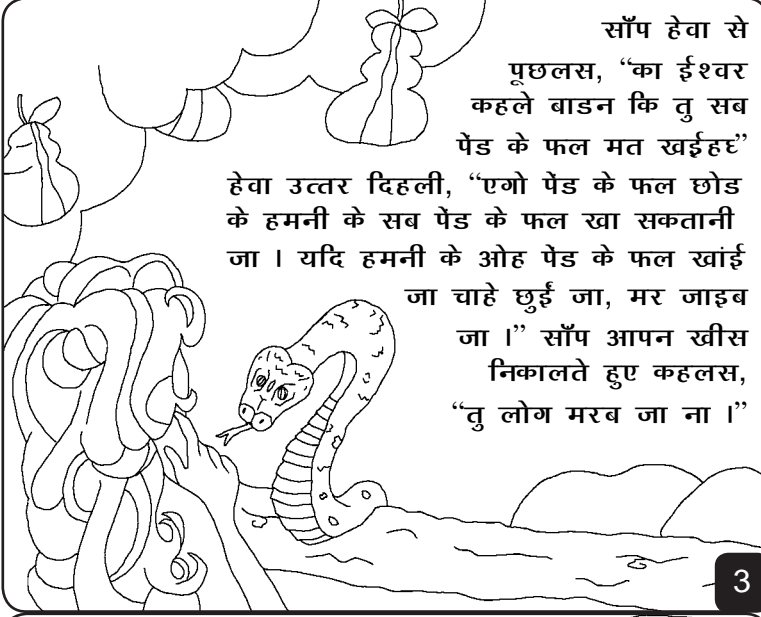 सॉंप हेवा से
पूछलस, “का ईश्वर
कहले बाडन कि तु सब
पेंड के फल मत खईहघ्”
हेवा उत्तर दिहली, “एगो पेंड के फल छोड
के हमनी के सब पेंड के फल खा सकतानी
जा । यदि हमनी के ओह पेंड के फल खांई
जा चाहे छुईं जा, मर जाइब
जा ।” सॉंप आपन खीस
निकालते हुए कहलस,
“तु लोग मरब जा ना ।”
3